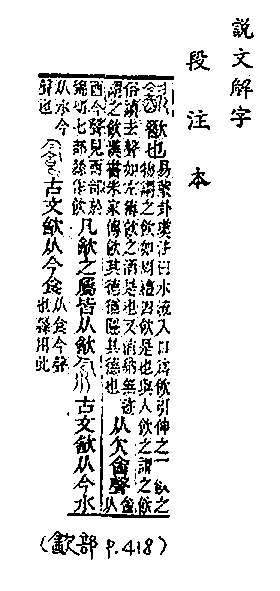 說文解字
段注本
歠也易蒙卦虞注曰水流入口爲飲引伸之飲之
物謂之飲如周禮四飲是也與人飲之謂之飲
俗讀去聲如左傳飲之酒是也又消納無迹
謂之飲漢書朱家傳飲其德猶隱其德也
从欠酓聲酓
从
酉今聲見酉部於
錦切七部隸作飲
凡㱃之屬皆从㱃 古文㱃从今水
从水今
聲也
古文㱃从今食从食今聲
也隸用此
(㱃部 P.418)